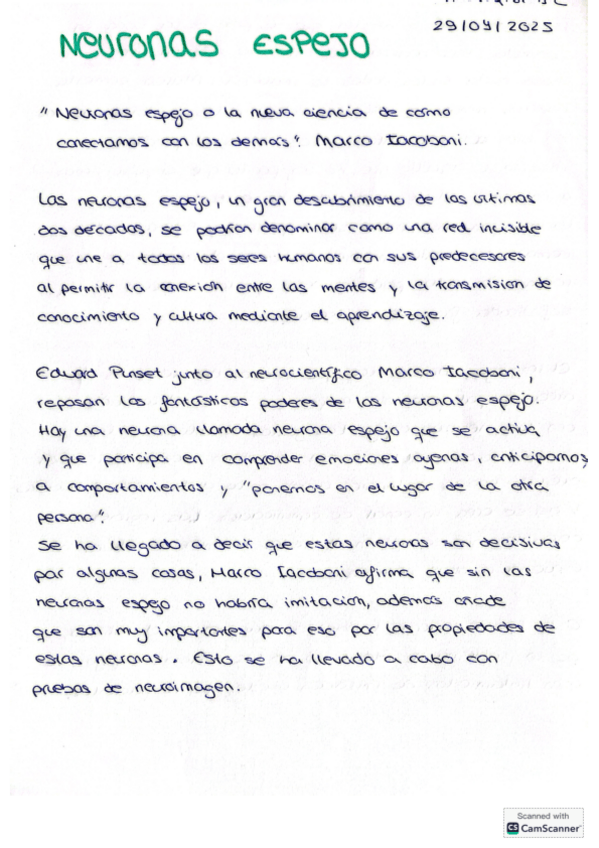 29/04/2025
Neuronas espejo
"Neuronas espejo o la nueva ciencia de cómo
conectamos con los demás". Marco Iacoboni.
Las neuronas espejo, un gran descubrimiento de las últimas
dos décadas, se podrían denominar como una red incisible
que une a todos los seres humanos con sus predecesores
al permitir la conexión entre las mentes y la transmisión de
conocimiento y cultura mediante el aprendizaje.
Eduard Punset junto al neurocientífico Marco Iacoboni,
repasan los fantásticos poderes de las neuronas espejo.
Hay una neurona llamada neurona espejo que se activa,
y que participa en comprender emociones ajenas, anticiparnos
a comportamientos y "ponernos en el lugar de la otra
persona".
Se ha llegado a decir que estas neuronas son decisivas
por algunas cosas, Marco Iacoboni afirma que sin las
neuronas espejo no habría imitación, además añade
que son muy importantes para eso por las propiedades de
estas neuronas. Esto se ha llevado a cabo con
pruebas de neuroimagen.
Scanned with
CS CamScanner